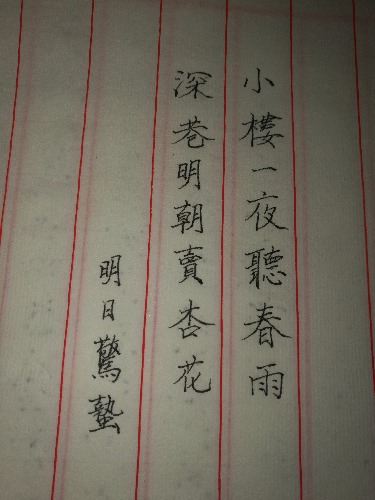 小樓一夜聽春雨
深巷明朝賣杏花
明日驚蟄